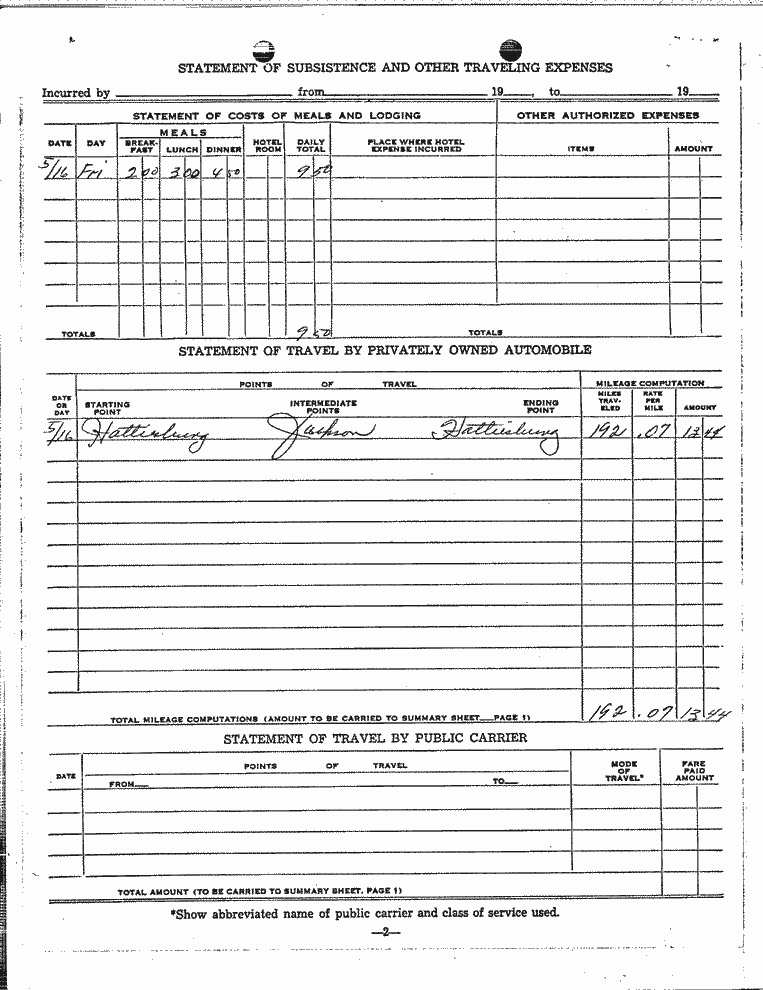 STATEMENT OF SUBSISTENCE AND OTHER TRAVELING EXPENSES
Incurred by from 19 , to 19
STATEMENT OF COSTS OF MEALS AND LODGING OTHER AUTHORIZED EXPENSES
MEALS
DATE DAY BREAK-FAST LUNCH DINNER HOTEL ROOM DAILY TOTAL PLACE WHERE HOTEL EXPENSE INCURRED ITEMS AMOUNT
5/16 Fri 2 00 3 00 4 50 9 50
TOTALS 9 50 TOTALS
STATEMENT OF TRAVEL BY PRIVATELY OWNED AUTOMOBILE
POINTS OF TRAVEL MILEAGE COMPUTATION
DATE OR DAY STARTING POINT INTERMEDIATE POINTS ENDING POINT MILES TRAV-ELED RATE PER MILE AMOUNT
5/16 Hattiesburg Jackson Hattiesburg 192 .07 13 44
TOTAL MILEAGE COMPUTATIONS (AMOUNT TO BE CARRIED TO SUMMARY SHEET—PAGE 1) 192 .07 13 44
STATEMENT OF TRAVEL BY PUBLIC CARRIER
DATE POINTS OF TRAVEL MODE OF TRAVEL* FARE PAID AMOUNT
FROM— TO—
TOTAL AMOUNT (TO BE CARRIED TO SUMMARY SHEET. PAGE 1)
*Show abbreviated name of public carrier and class of service used.
—2—